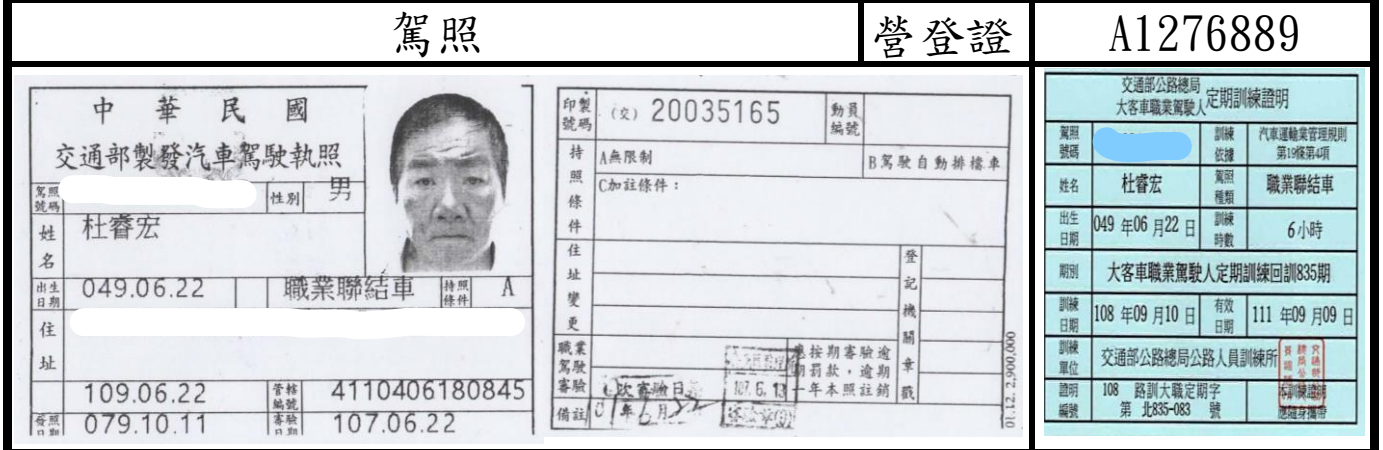 駕照 營登證 A1276889
中華民國
交通部製發汽車駕駛執照
駕照號碼 性別 男
姓名 杜睿宏
出生日期 049.06.22 職業聯結車 持照條件 A
住址
109.06.22 管轄編號 4110406180845
發照日期 079.10.11 審驗日期 107.06.22
印製號碼 (交) 20035165 動員編號
持照條件 A無限制 B駕駛自動排檔車
C加註條件：
住址變更 登記機關章戳
職業駕駛審驗 應按期審驗逾
期罰款，逾期
一年本照註銷
次審驗日 107.6.13
備註 年6月22
01.12. 2,900,000
交通部公路總局
大客車職業駕駛人 定期訓練證明
駕照號碼 訓練依據 汽車運輸業管理規則
第19條第4項
姓名 杜睿宏 駕照種類 職業聯結車
出生日期 049 年06 月22 日 訓練時數 6小時
期別 大客車職業駕駛人定期訓練回訓835期
訓練日期 108 年09 月10 日 有效日期 111 年09 月09 日
訓練單位 交通部公路總局公路人員訓練所
證明編號 108 路訓大職定期字
第 北835-083 號
本訓練證明
應隨身攜帶